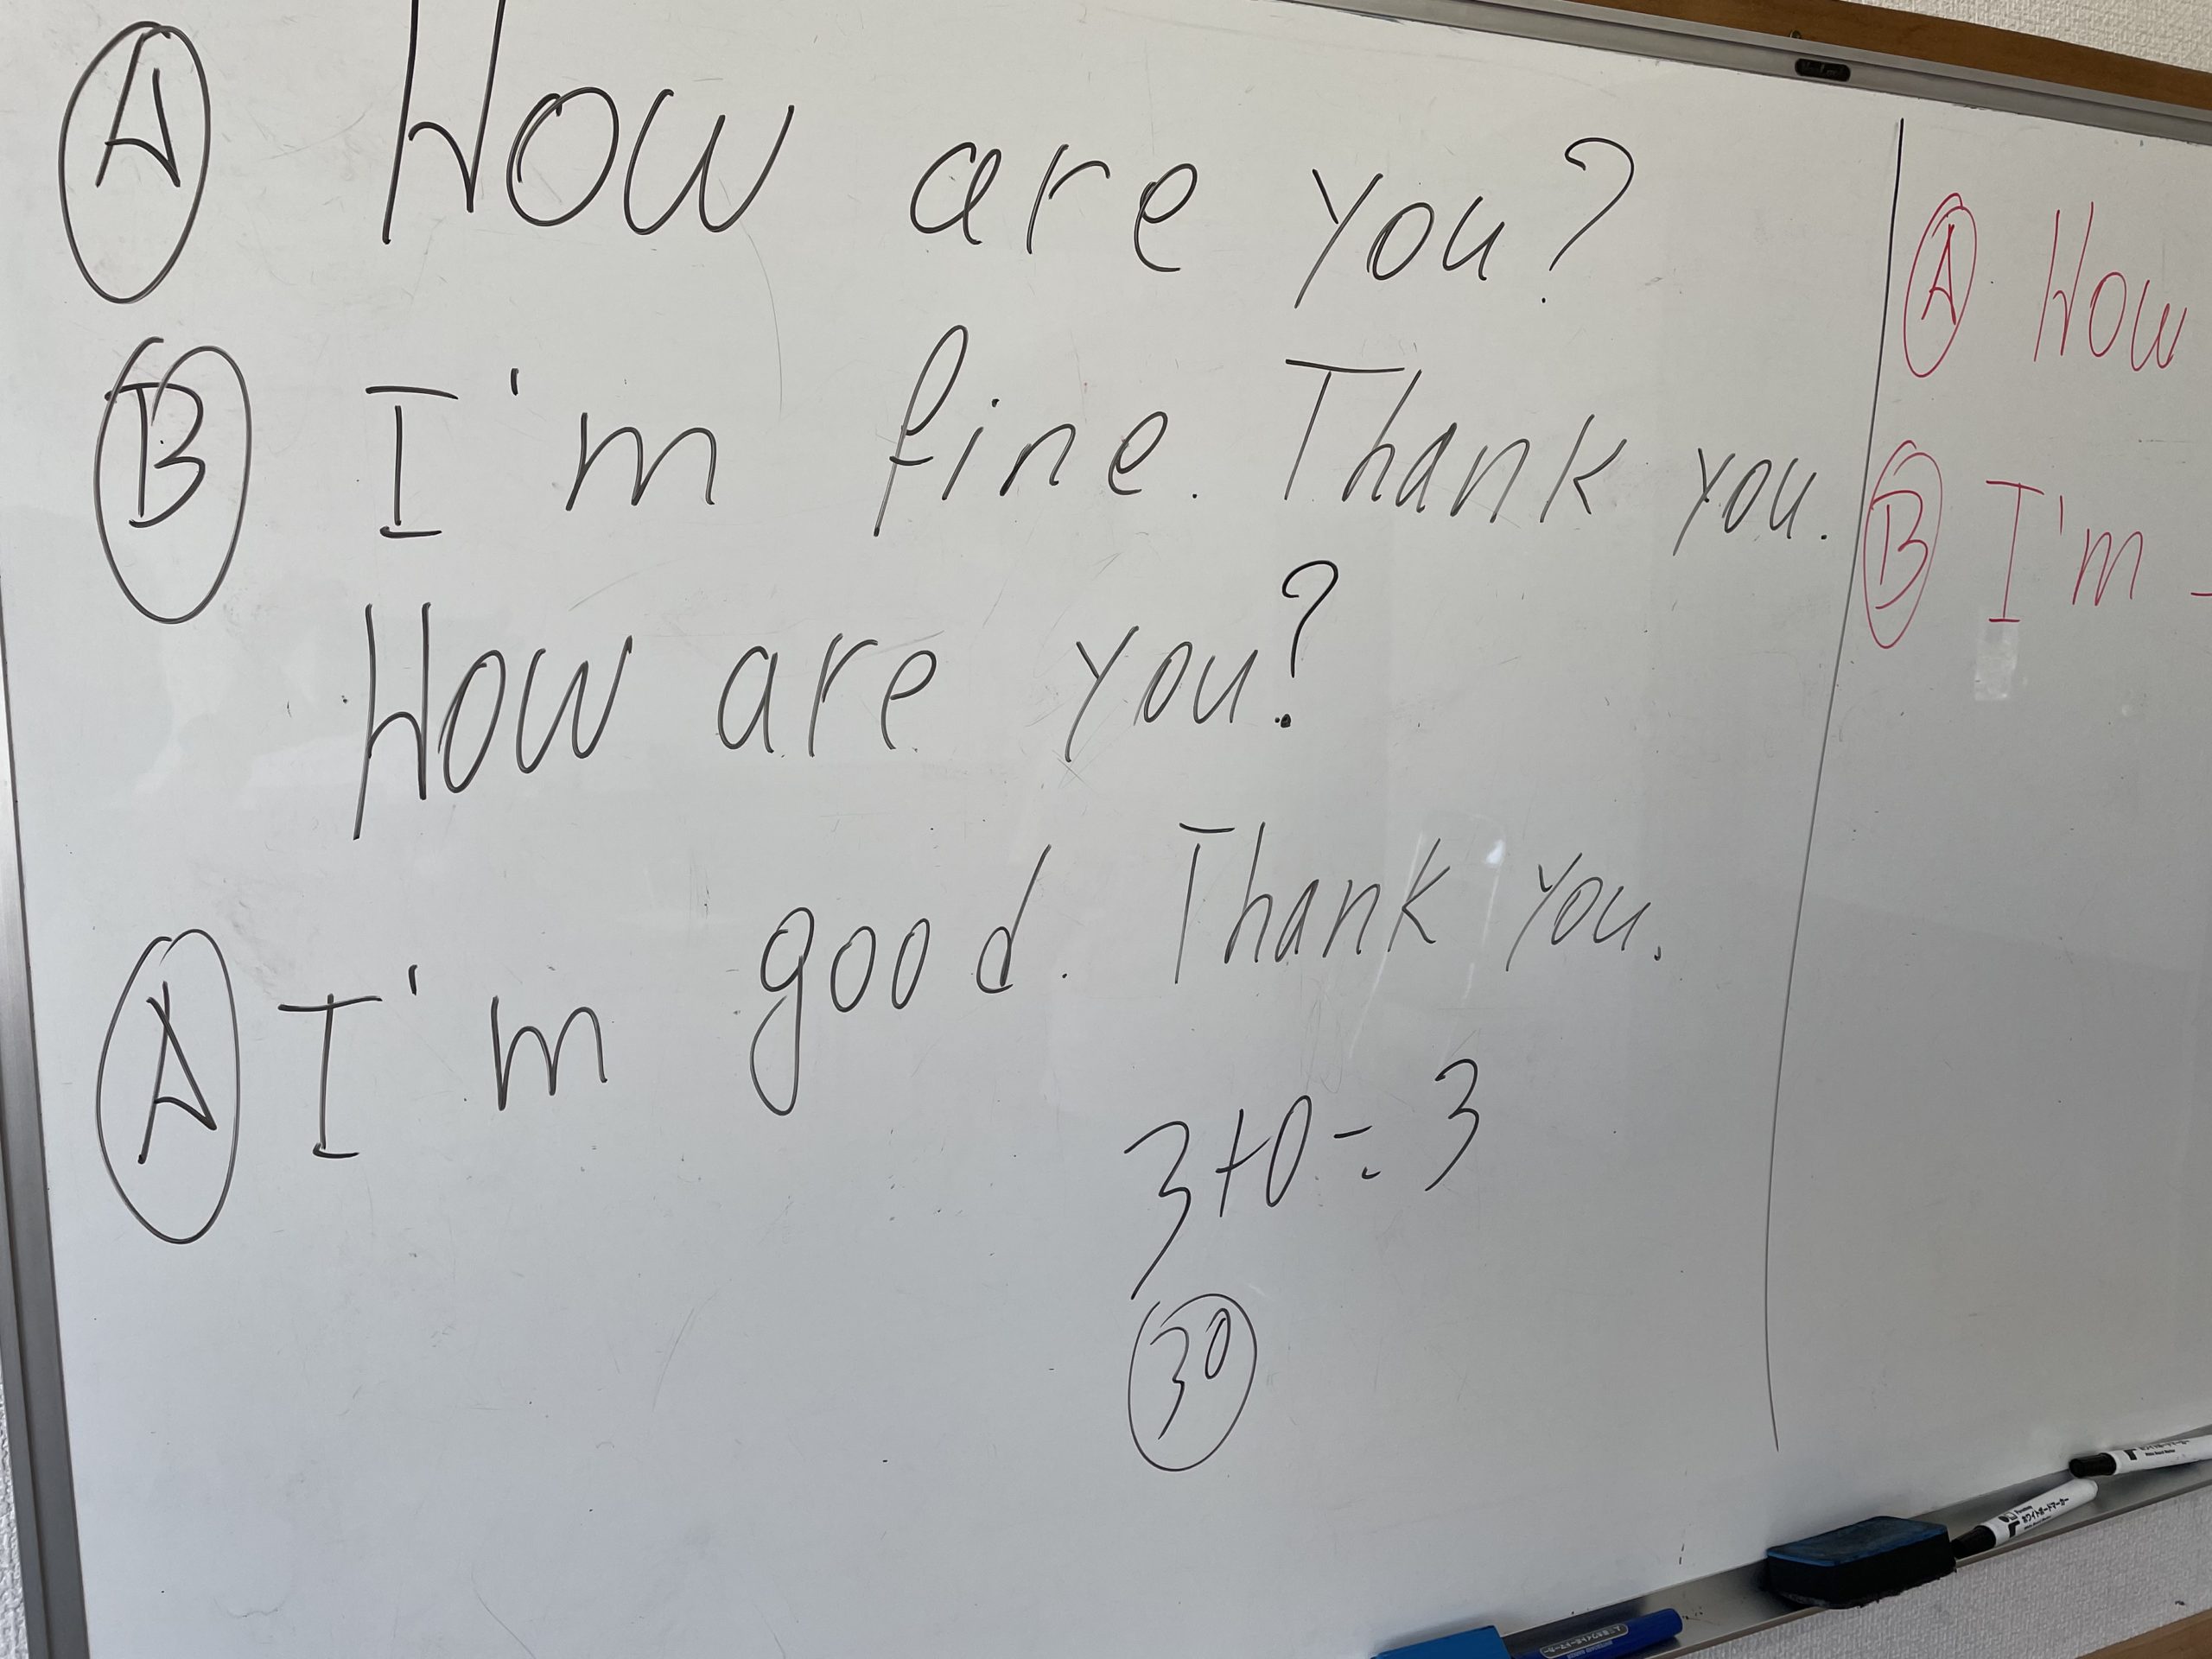 Ⓐ How are you?
Ⓑ I'm fine. Thank you.
How are you?
Ⓐ I'm good. Thank you.
3+0=3
30
Ⓐ How
Ⓑ I'm
ホワイトボードマーカー